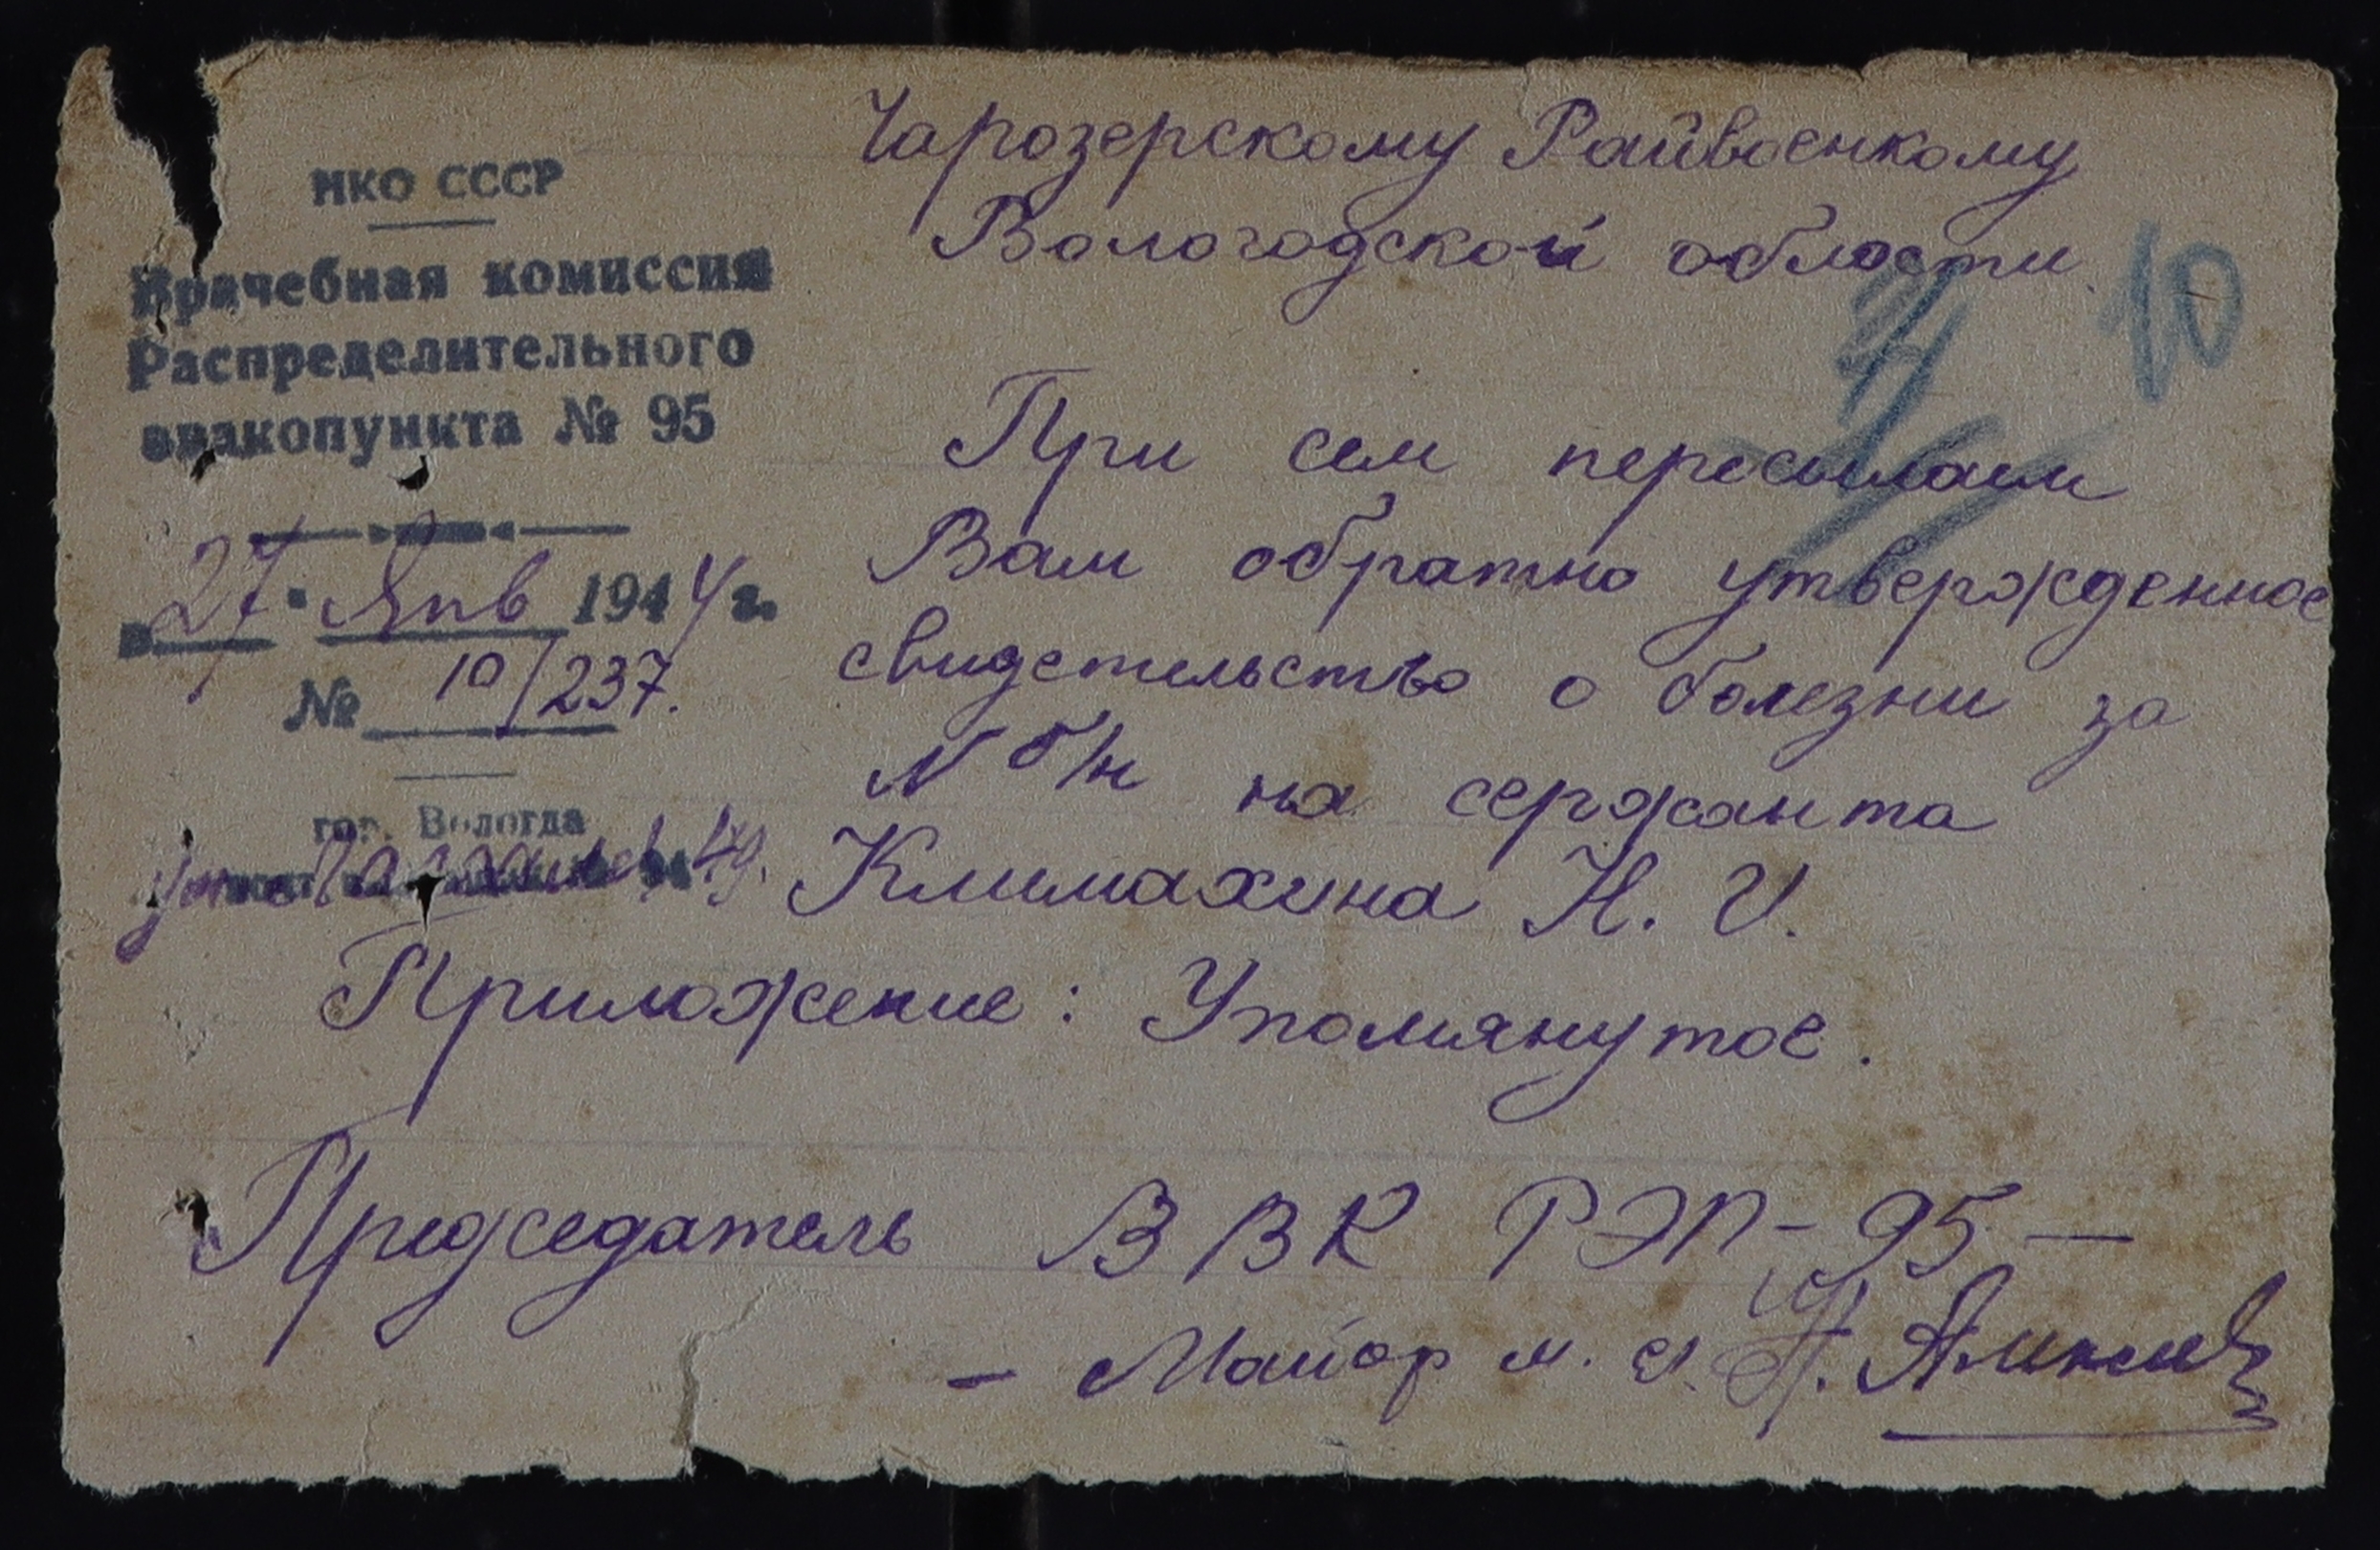 НКО СССР
Врачебная комиссия
Распределительного
эвакопункта № 95
27 Янв 1944 г.
№ 10/237.
гор. Вологда
Чарозерскому Райвоенкому
Вологодской области
10
При сем пересылаем
Вам обратно утвержденное
свидетельство о болезни за
N б/н на сержанта
Климахина Н. И.
Приложение: Упомянутое.
Председатель ВВК РЭП-95 –
– Майор м. с.